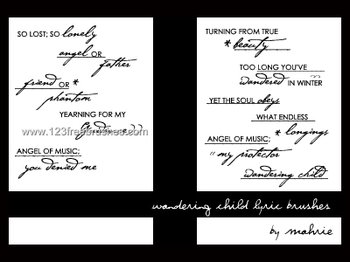 SO LOST; SO lonely
angel OR
father
friend OR *
phantom
YEARNING FOR MY
www.123freebrushes.com
ANGEL OF MUSIC;
you denied me
TURNING FROM TRUE
* beauty
TOO LONG YOU'VE
wandered IN WINTER
YET THE SOUL obeys
WHAT ENDLESS
* longings
ANGEL OF MUSIC;
my protector
wandering child
wandering child lyric brushes
by mahrie